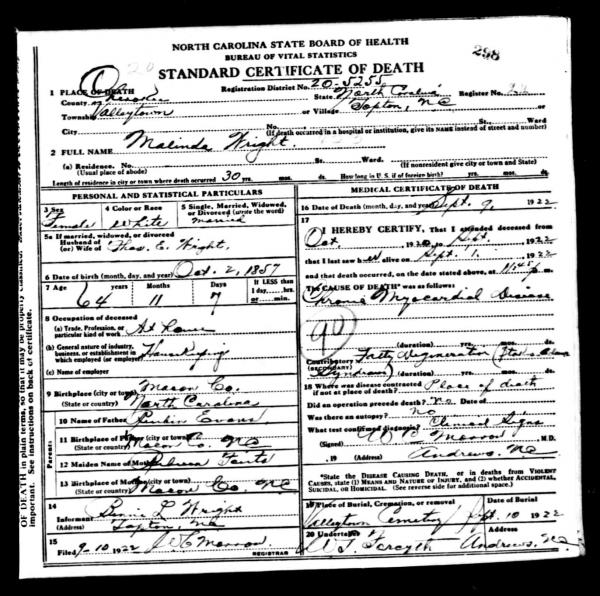 NORTH CAROLINA STATE BOARD OF HEALTH
BUREAU OF VITAL STATISTICS
298
STANDARD CERTIFICATE OF DEATH
1 PLACE OF DEATH Registration District No. 20-5255 Register No.
County Cherokee State North Carolina
Township Valleytown or Village Topton, NC or
City No. St. Ward
(If death occurred in a hospital or institution, give its NAME instead of street and number)
2 FULL NAME Malinda Wright
(a) Residence. No. St. Ward.
(Usual place of abode) (If nonresident give city or town and State)
Length of residence in city or town where death occurred 30 yrs. mos. ds. How long in U. S. if of foreign birth? yrs. mos. ds.
PERSONAL AND STATISTICAL PARTICULARS
3 Sex Female
4 Color or Race White
5 Single, Married, Widowed, or Divorced (write the word) married
5a If married, widowed, or divorced
Husband of
(or) Wife of Thos. E. Wright
6 Date of birth (month, day, and year) Oct. 2, 1857
7 Age years Months Days If LESS than
64 11 7 1 day, hrs.
or min.
8 Occupation of deceased
(a) Trade, Profession, or particular kind of work At Home
(b) General nature of industry, business, or establishment in which employed (or employer) Housekeeping
(c) Name of employer
9 Birthplace (city or town) Macon Co.
(State or country) North Carolina
10 Name of Father Evans
11 Birthplace of Father (city or town)
(State or country) Macon Co. NC
12 Maiden Name of Mother
13 Birthplace of Mother (city or town)
(State or country) Macon Co. NC
14
Informant L Wright
(Address) Topton, NC
15
Filed 9-10 1922 REGISTRAR
MEDICAL CERTIFICATE OF DEATH
16 Date of Death (month, day, and year) Sept. 9, 1922
17
I HEREBY CERTIFY, That I attended deceased from
Oct 1920 to Sept. 1922
that I last saw her alive on Sept. 1. 1922
and that death occurred, on the date stated above, at 11:45 p.m.
The CAUSE OF DEATH* was as follows:
Chronic Myocardial Disease
90
(duration) yrs. mos. ds.
Contributory Fatty Degeneration
(SECONDARY)
Syndrom) (duration) yrs. mos. ds.
18 Where was disease contracted
if not at place of death? Place of death
Did an operation precede death? No Date of
Was there an autopsy? No
What test confirmed diagnosis? Clinical Signs
(Signed) M.D.
, 19 (Address) Andrews, NC
*State the DISEASE CAUSING DEATH, or in deaths from VIOLENT CAUSES, state (1) MEANS AND NATURE OF INJURY, and (2) whether ACCIDENTAL, SUICIDAL, OR HOMICIDAL. (See reverse side for additional space.)
19 Place of Burial, Cremation, or removal Date of Burial
Valleytown Cemetery Sept. 10 1922
20 Undertaker Address
W. T. Forsyth Andrews, NC
OF DEATH in plain terms, so that it may be properly classified.
important. See instructions on back of certificate.